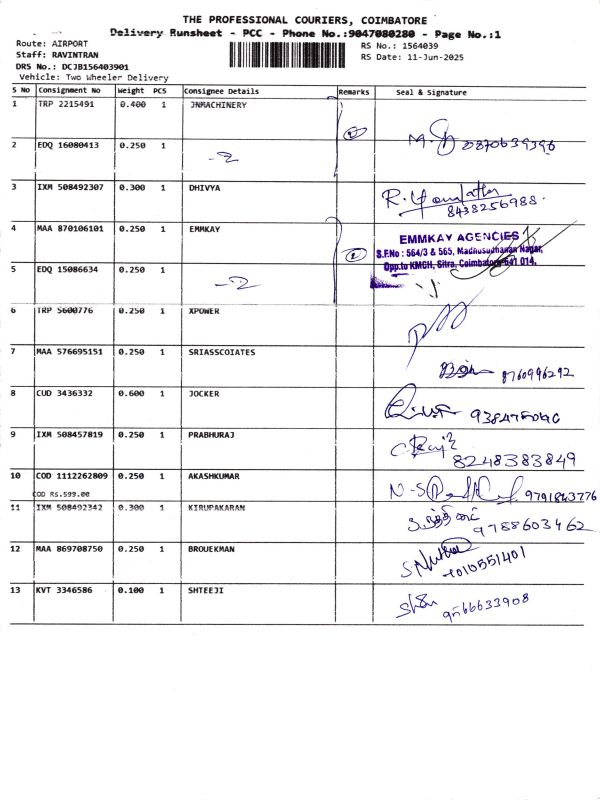 THE PROFESSIONAL COURIERS, COIMBATORE
Delivery Runsheet - PCC - Phone No.:9047080280 - Page No.:1
Route: AIRPORT
RS No.: 1564039
Staff: RAVINTRAN
RS Date: 11-Jun-2025
DRS No.: DCJB156403901
Vehicle: Two Wheeler Delivery
S No Consignment No Weight PCS Consignee Details Remarks Seal & Signature
1 TRP 2215491 0.400 1 JNMACHINERY
2 EDQ 16080413 0.250 1
3 IXM 508492307 0.300 1 DHIVYA
8438256988
4 MAA 870106101 0.250 1 EMMKAY
EMMKAY AGENCIES
S.F.No : 564/3 & 565, Madhusudhanan Nagar,
Opp.to KMCH, Sitra, Coimbatore-641 014.
5 EDQ 15086634 0.250 1
6 TRP 5600776 0.250 1 XPOWER
7 MAA 576695151 0.250 1 SRIASSCOIATES
8760996292
8 CUD 3436332 0.600 1 JOCKER
9 IXM 508457819 0.250 1 PRABHURAJ
8248383849
10 COD 1112262809 0.250 1 AKASHKUMAR
COD RS.599.00
9791843776
11 IXM 508492342 0.300 1 KIRUPAKARAN
9788603462
12 MAA 869708750 0.250 1 BROUEKMAN
7010551401
13 KVT 3346586 0.100 1 SHTEEJI
9566633908